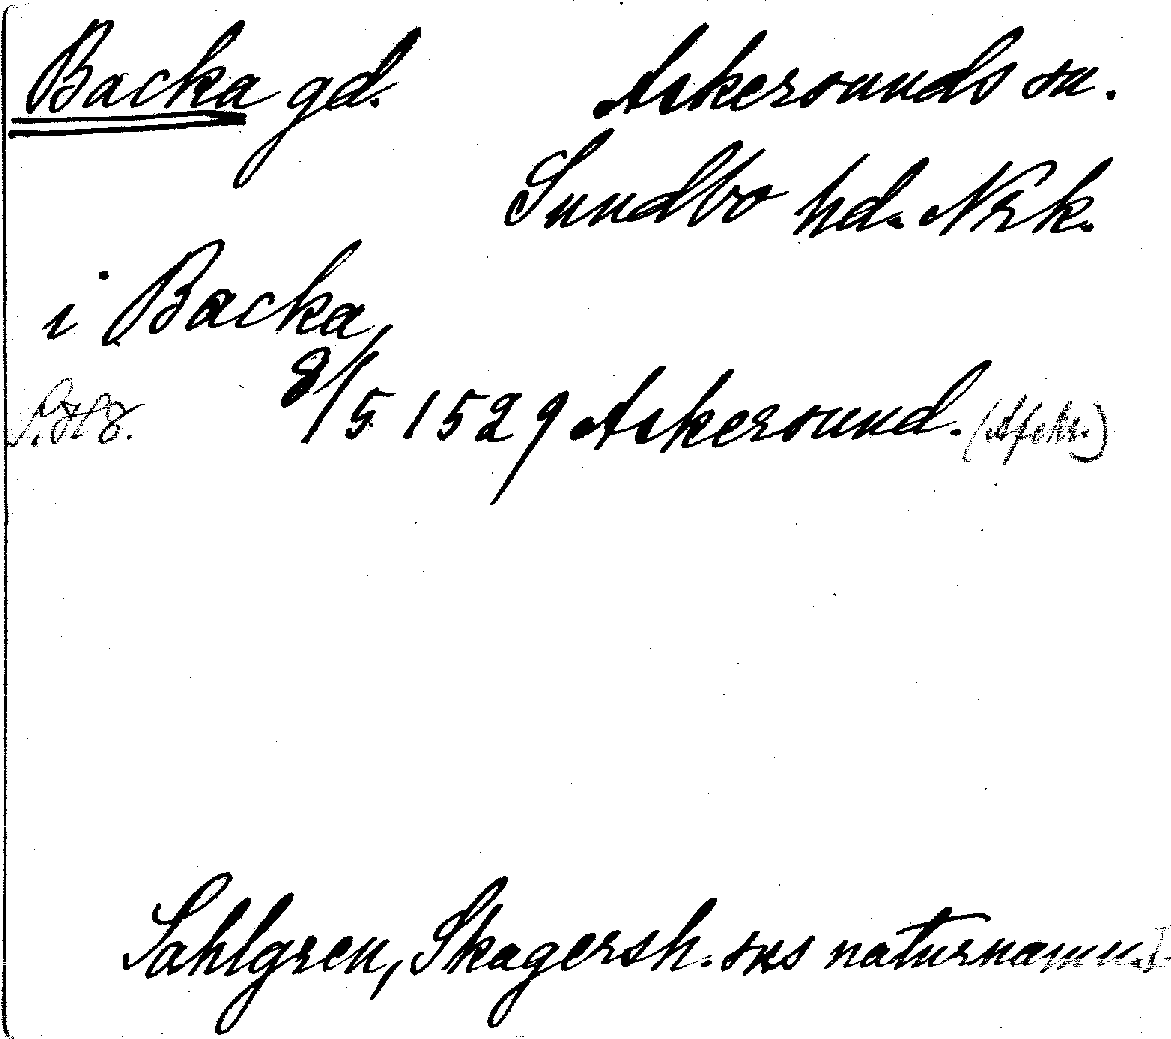 Backa gd. Askersunds sn.
Sundbo hd. Nrk.
i Backa,
8/5 1529 Askersund.
Sahlgren, Skagersh. sns naturnamn. I.